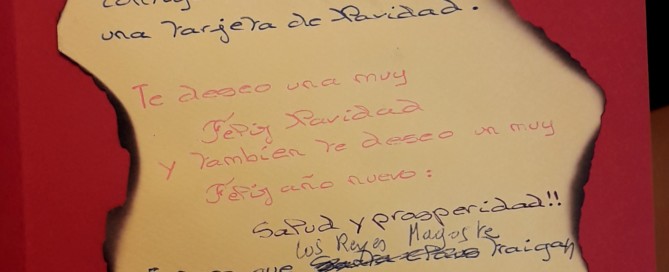 una Tarjeta de Navidad.
Te deseo una muy
Feliz Navidad
y también te deseo un muy
Feliz año nuevo:
Salud y prosperidad!!
los Reyes Magos te
que traigan